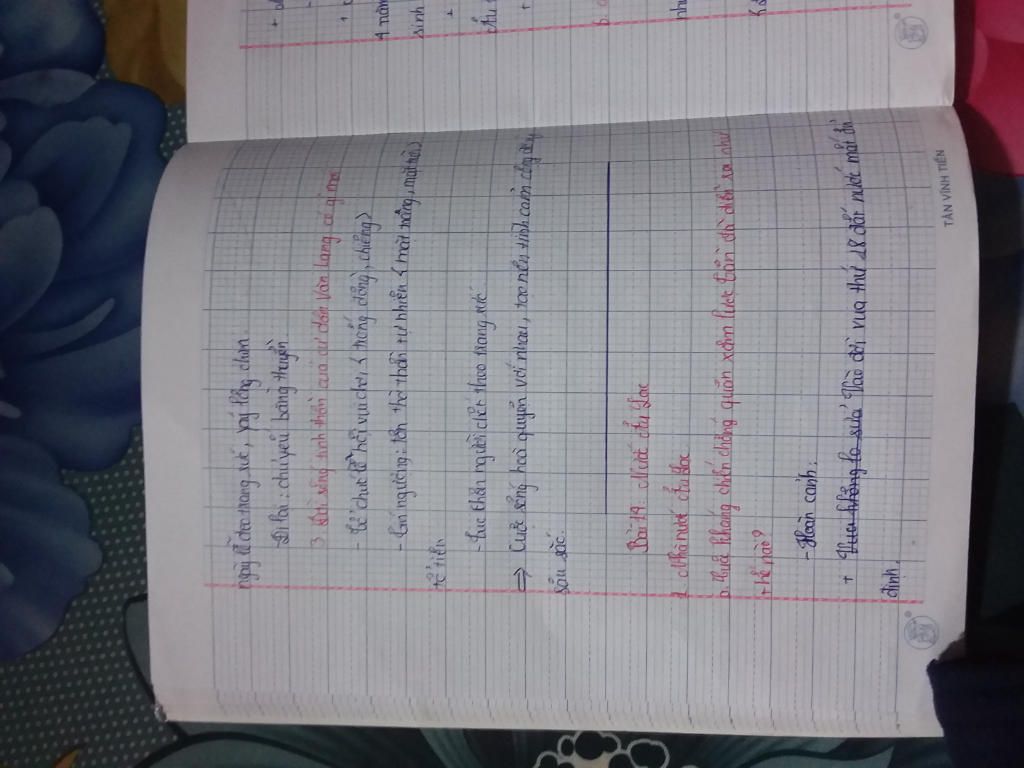 ngày lễ đeo trang sức, váy lông chim.
- Đi lại: chủ yếu bằng thuyền
3 Đời sống tinh thần của cư dân Văn Lang có gì mới
- Tổ chức lễ hội vui chơi < trống đồng, chiêng>
- Tín ngưỡng: tôn thờ thần tự nhiên < mặt trăng, mặt trời>
tổ tiên
- Tục thần người chết theo trang sức
=> Cuộc sống hoà quyện với nhau, tạo nên tình cảm cộng đồng
sâu sắc.
Bài 14: Nước Âu Lạc
1. Nhà nước Âu Lạc
a. Cuộc kháng chiến chống quân xâm lược Tần đã diễn ra như
thế nào?
- Hoàn cảnh:
+ Vua không lo sửa Vào đời vua thứ 18 đất nước mất ổn
định.
TÂN VĨNH TIẾN
+
-
+
4 năm
sinh
+
cầu
+